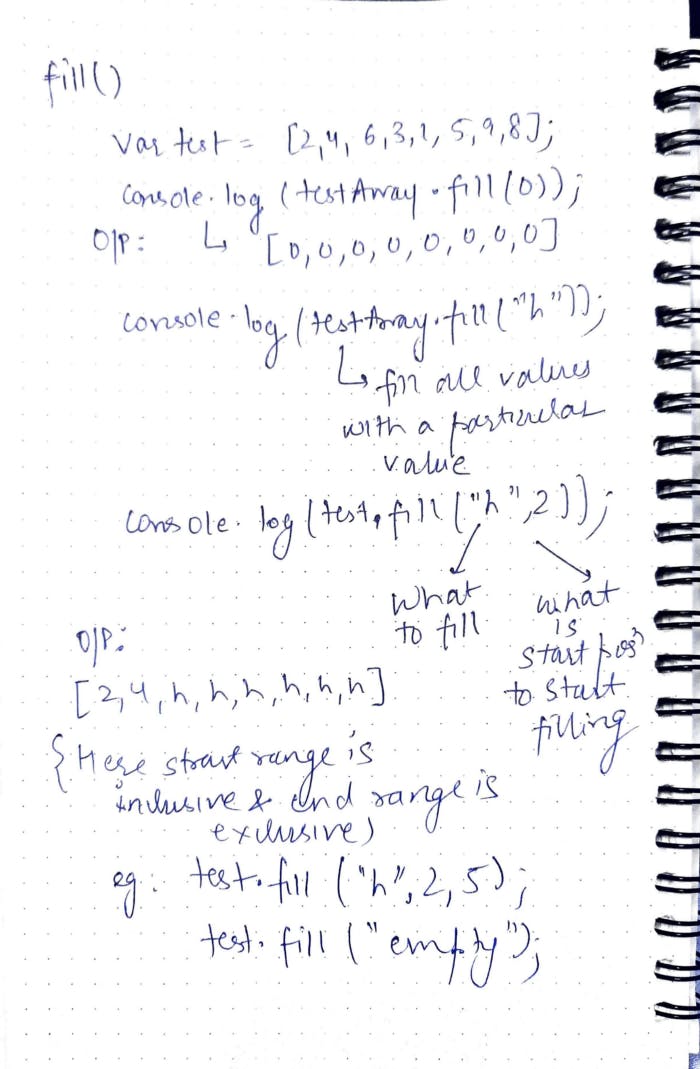 fill()
var test = [2,4,6,3,1,5,9,8];
console.log (testArray.fill(0));
O/P: ↳ [0,0,0,0,0,0,0,0]
console.log (testArray.fill("h"));
↳ fill all values
with a particular
value
console.log (test.fill ("h",2));
what
to fill
what
is
start posⁿ
to start
filling
O/P:
[2,4,h,h,h,h,h,h]
{Here start range is
inclusive & end range is
exclusive)
eg. test.fill ("h",2,5);
test.fill ("empty");